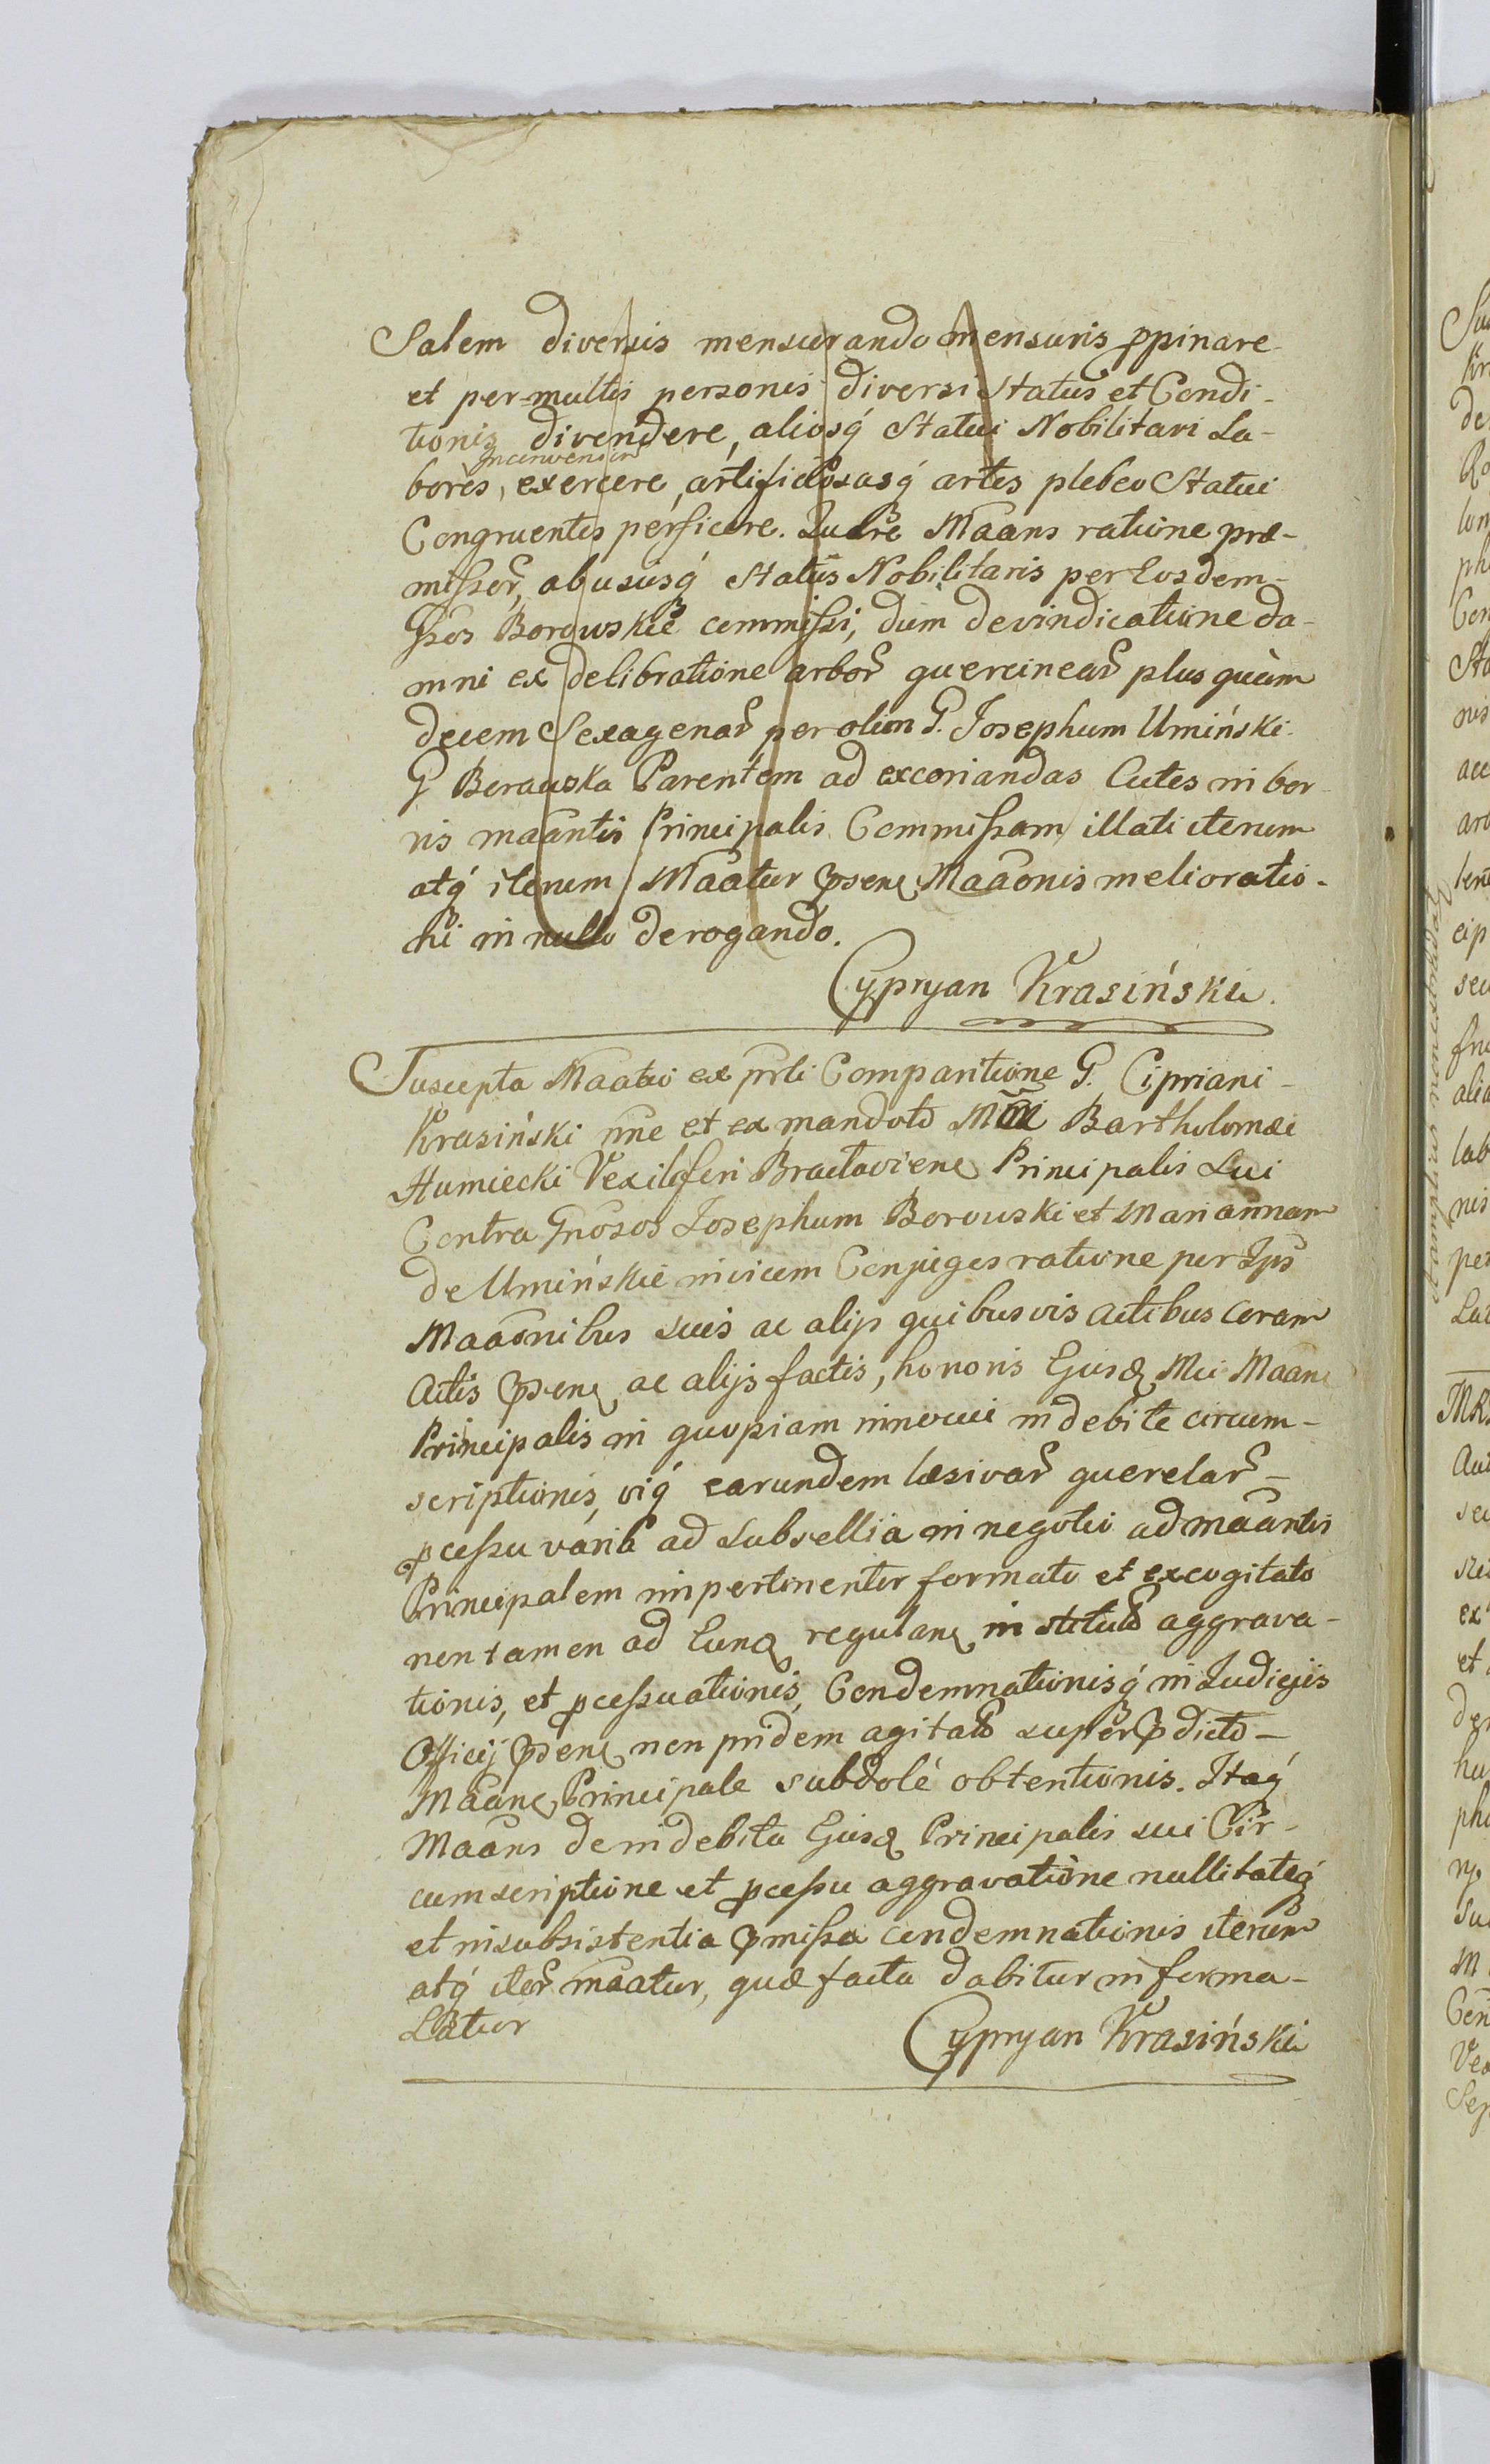 Salem diversis mensurando mensuris ppinare
et per multis personis diversi Status et Condi-
tionis divendere, aliosq́ Statui Nobilitari La-
Inconvenien
bores, exercere, artificiosasq́ artes plebeo Statui
Congruentes perficere. Quare Maans ratione præ-
missor̃, abususq́ Status Nobilitaris per Eosdem
Gsos Borowskie commissi, dum de vindicatione da-
mni ex delibratione arbor̃ quercinear̃ plus quàm
decem Sexagenar̃ per olim G. Josephum Umiński
G Borowska Parentem ad excoriandas Cutes in bor-
ris maantis Principalis Commissam illati iterum
atq́ iterum Maatur psen Maaonis melioratio-
ni in nullo derogando.
Cypryan Krasiński.
Suscepta Maatio ex prti Comparitione G. Cipriani
Krasiński nne et ex mandato Mci Bartholomæi
Humiecki Vexiliferi Braclavien Principalis Sui
Contra Gnosos Josephum Borowski et Mariannam
de Umińskie invicem Conjuges ratione per Ips
Maaonibus suis ac alijs quibusvis actibus coram
Actis psen ac alijs factis, honoris Ejusd Mci Maan
Principalis in quopiam innocui indebite circum-
scriptionis, viq́ earundem læsivar̃ querelar̃
pcessu varib ad Subsellia in negotio ad maantis
Principalem impertinenter formato et excogitato
non tamen ad Eund regulan instituto aggrava-
tionis, et pcessuationis, Condemnationisq́ in Judicijs
Officij psen non pridem agitatis super pdicto
Maane Principale subdolé obtentionis. Itaq́
Maans de indebita Ejusd Principalis sui Cir-
cumscriptione et pcessu aggravatione nullitateq́
et insubsistentia pmissa condemnationis iterum
atq́ iter̃ maatur, quæ facta dabitur in forma
Latior
Cypryan Krasiński